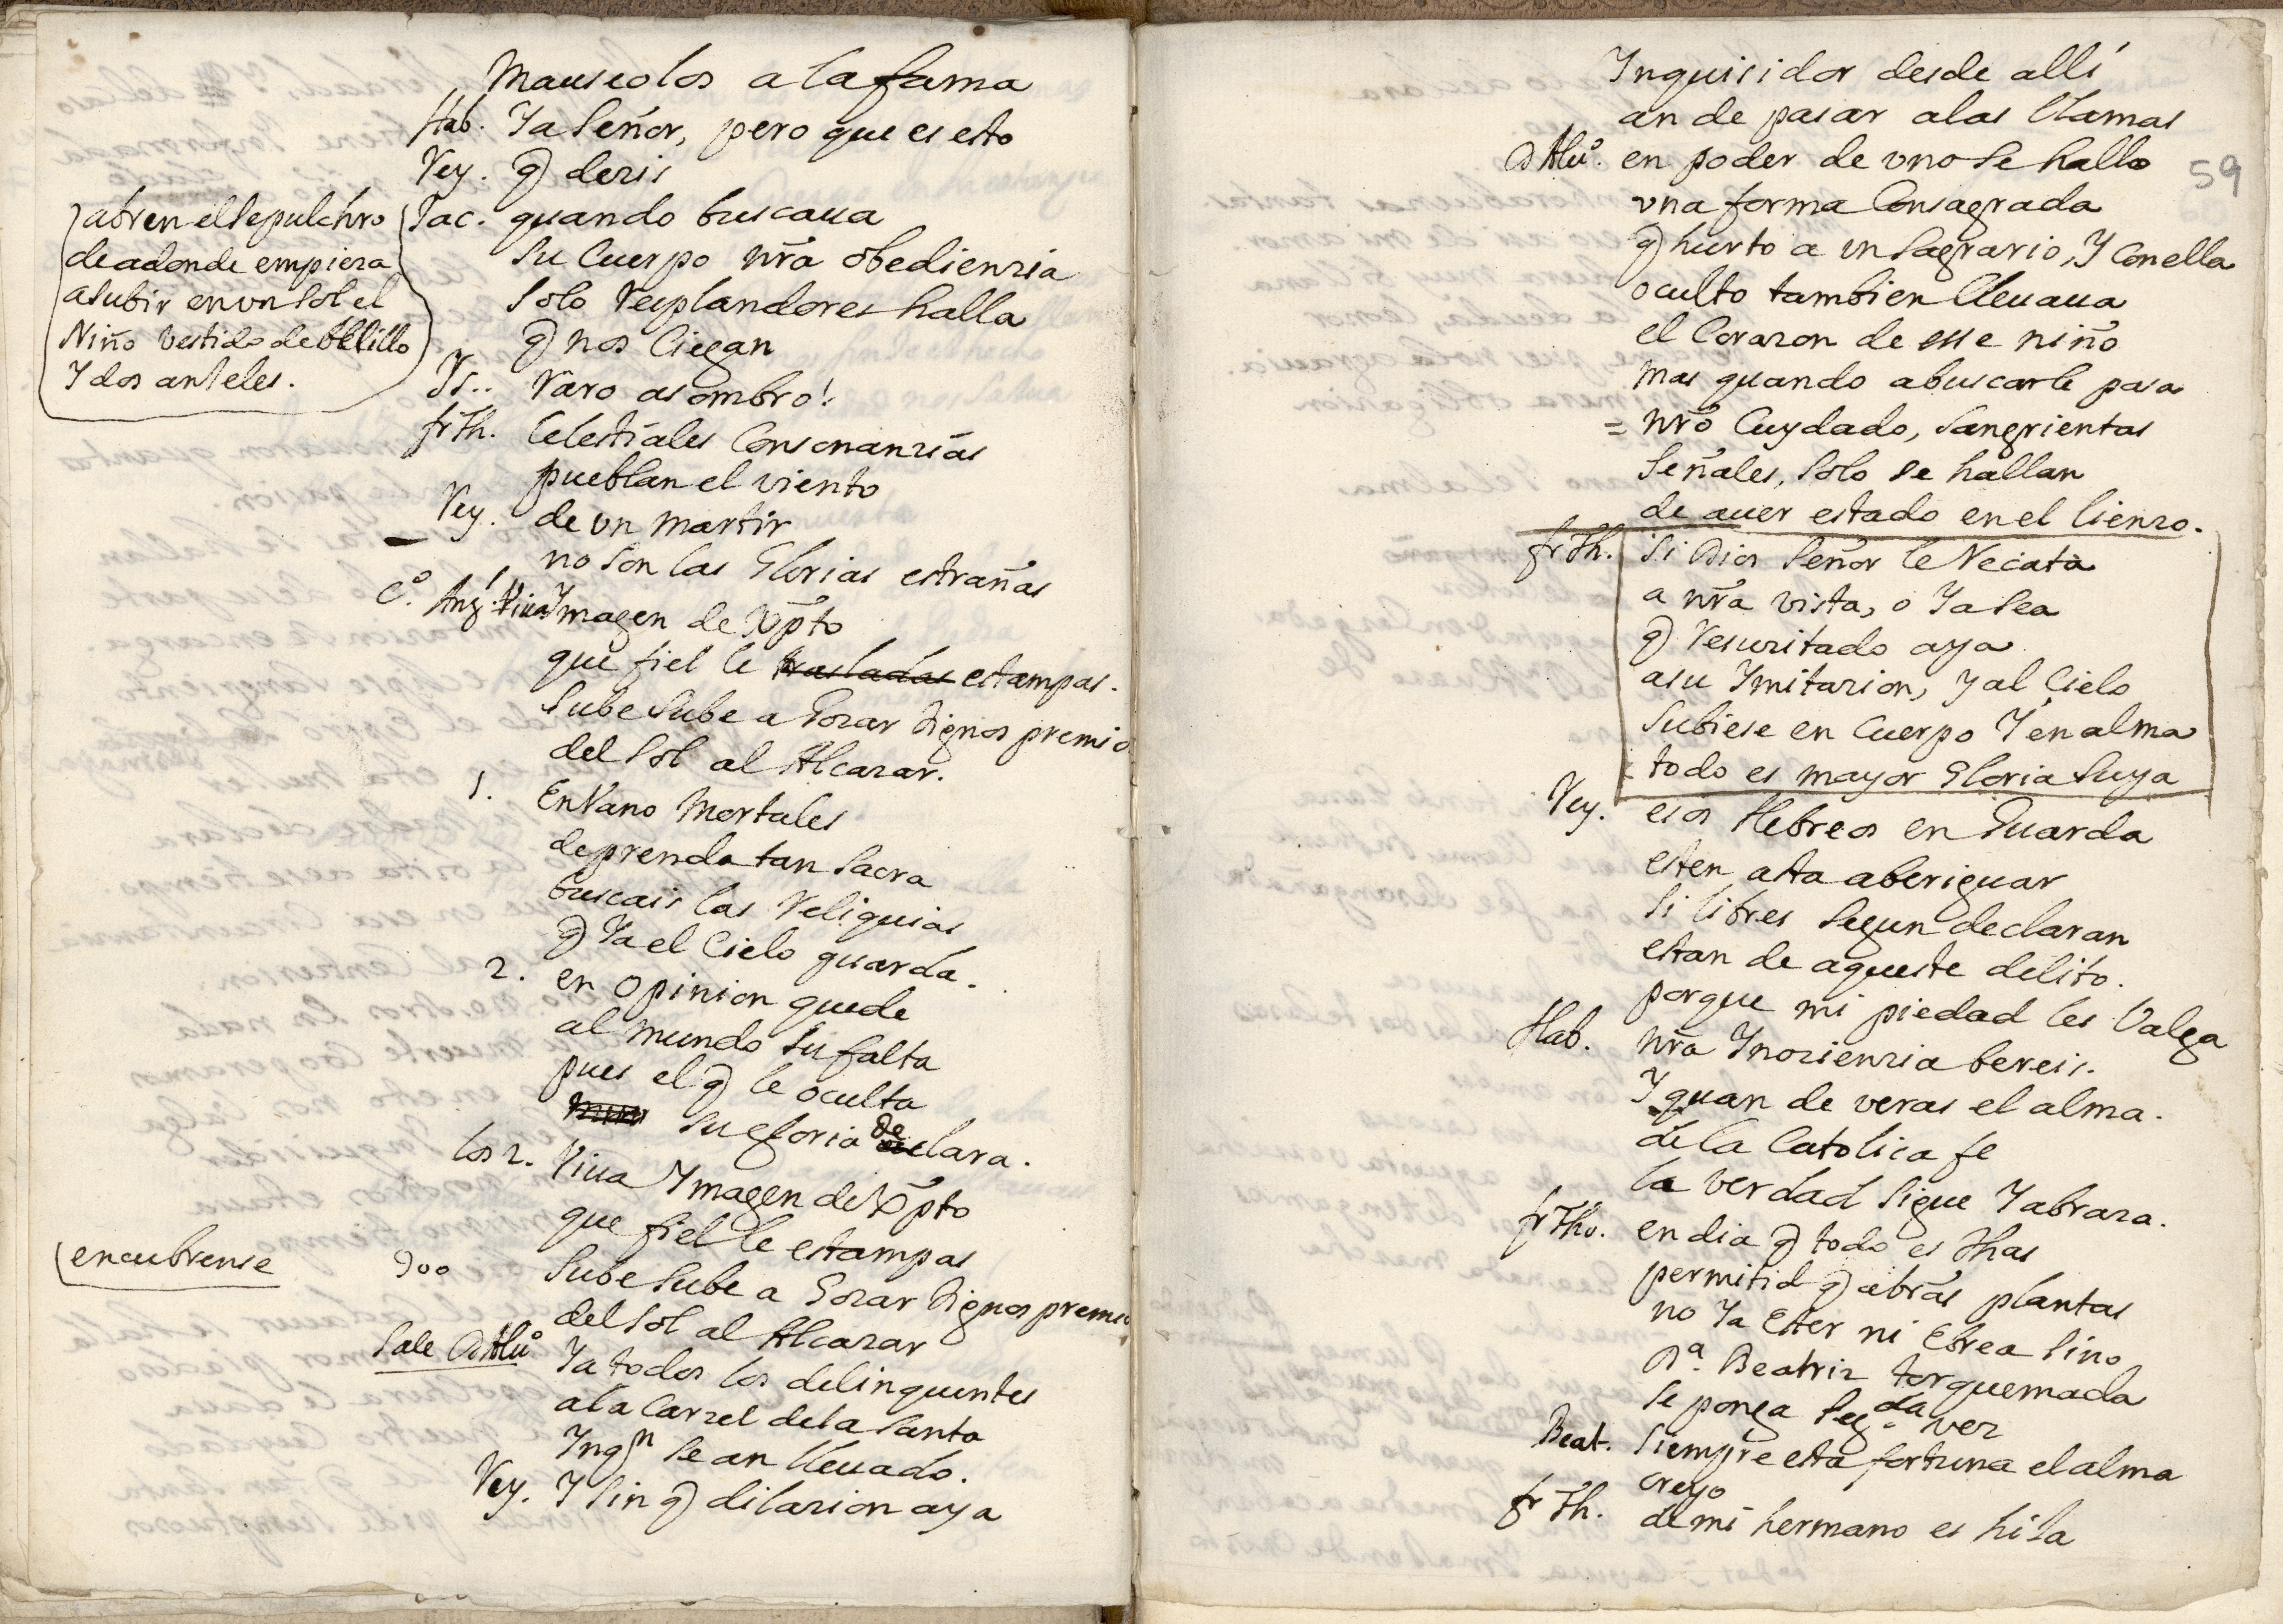 Mauseolos a la fama
Hab. Ya Señor, pero que es esto
Rey. q dezis
(abren el sepulchro
de adonde empieza
a subir en un Sol el
Niño vestido de belillo
Y dos anjeles.
Jac. quando buscaua
su Cuerpo nrã obedienzia
solo resplandores halla
q nos Ciegan
Ys.. raro asombro!
fr Th. Celestiales Consonanzias
pueblan el viento
Rey. de vn martir
no son las Glorias estrañas
Co. Ang. 1 Viua Ymagen de Xp̃to
que fiel le trasladas estampas.
Sube sube a Gozar dignos premio
del Sol al Alcazar.
1. En Vano Mortales
de prenda tan sacra
buscais las reliquias
q Ya el Cielo guarda.
2. en opinion quede
al mundo su falta
pues el q le oculta
su gloria declara.
los 2. Viua Ymagen de Xp̃to
que fiel le estampas
(encubrense
Sube sube a Gozar dignos premio
del Sol al Alcazar
Sale D Aluo Ya todos los delinquentes
a la Carzel de la Santa
Ingqn se an lleuado.
Rey. Y sin q dilazion aya
59
Ynquisidor desde allí
an de pasar a las llamas
D Aluo. en poder de vno se hallo
vna forma Consagrada
q hurto a vn Sagrario, Y Con ella
oculto tambien lleuaua
el Corazon de esse niño
mas quando a buscarle pasa
= nrõ Cuydado, sangrientas
señales, solo se hallan
de auer estado en el lienzo.
fr Th. Si Dios Señor le Recata
a nrã vista, o Ya sea
q resuzitado aya
a su Ymitazion, y al Cielo
subiese en Cuerpo Y en alma
todo es mayor Gloria suya
Rey. esos Hebreos en Guarda
esten asta aberiguar
si libres segun declaran
estan de aqueste delito.
porque mi piedad les Valga
Hab. nrã Ynozienzia bereis.
Y quan de veras el alma.
de la Catolica fe
la verdad sigue Y abraza.
fr Tho. en dia q todo es dhas
permitid q a bras plantas
no Ya Ester ni Ebrea sino
Da. Beatriz torquemada
se ponga segda vez
Beat. siempre esta fortuna el alma
creyo
fr Th. de mi hermano es hija